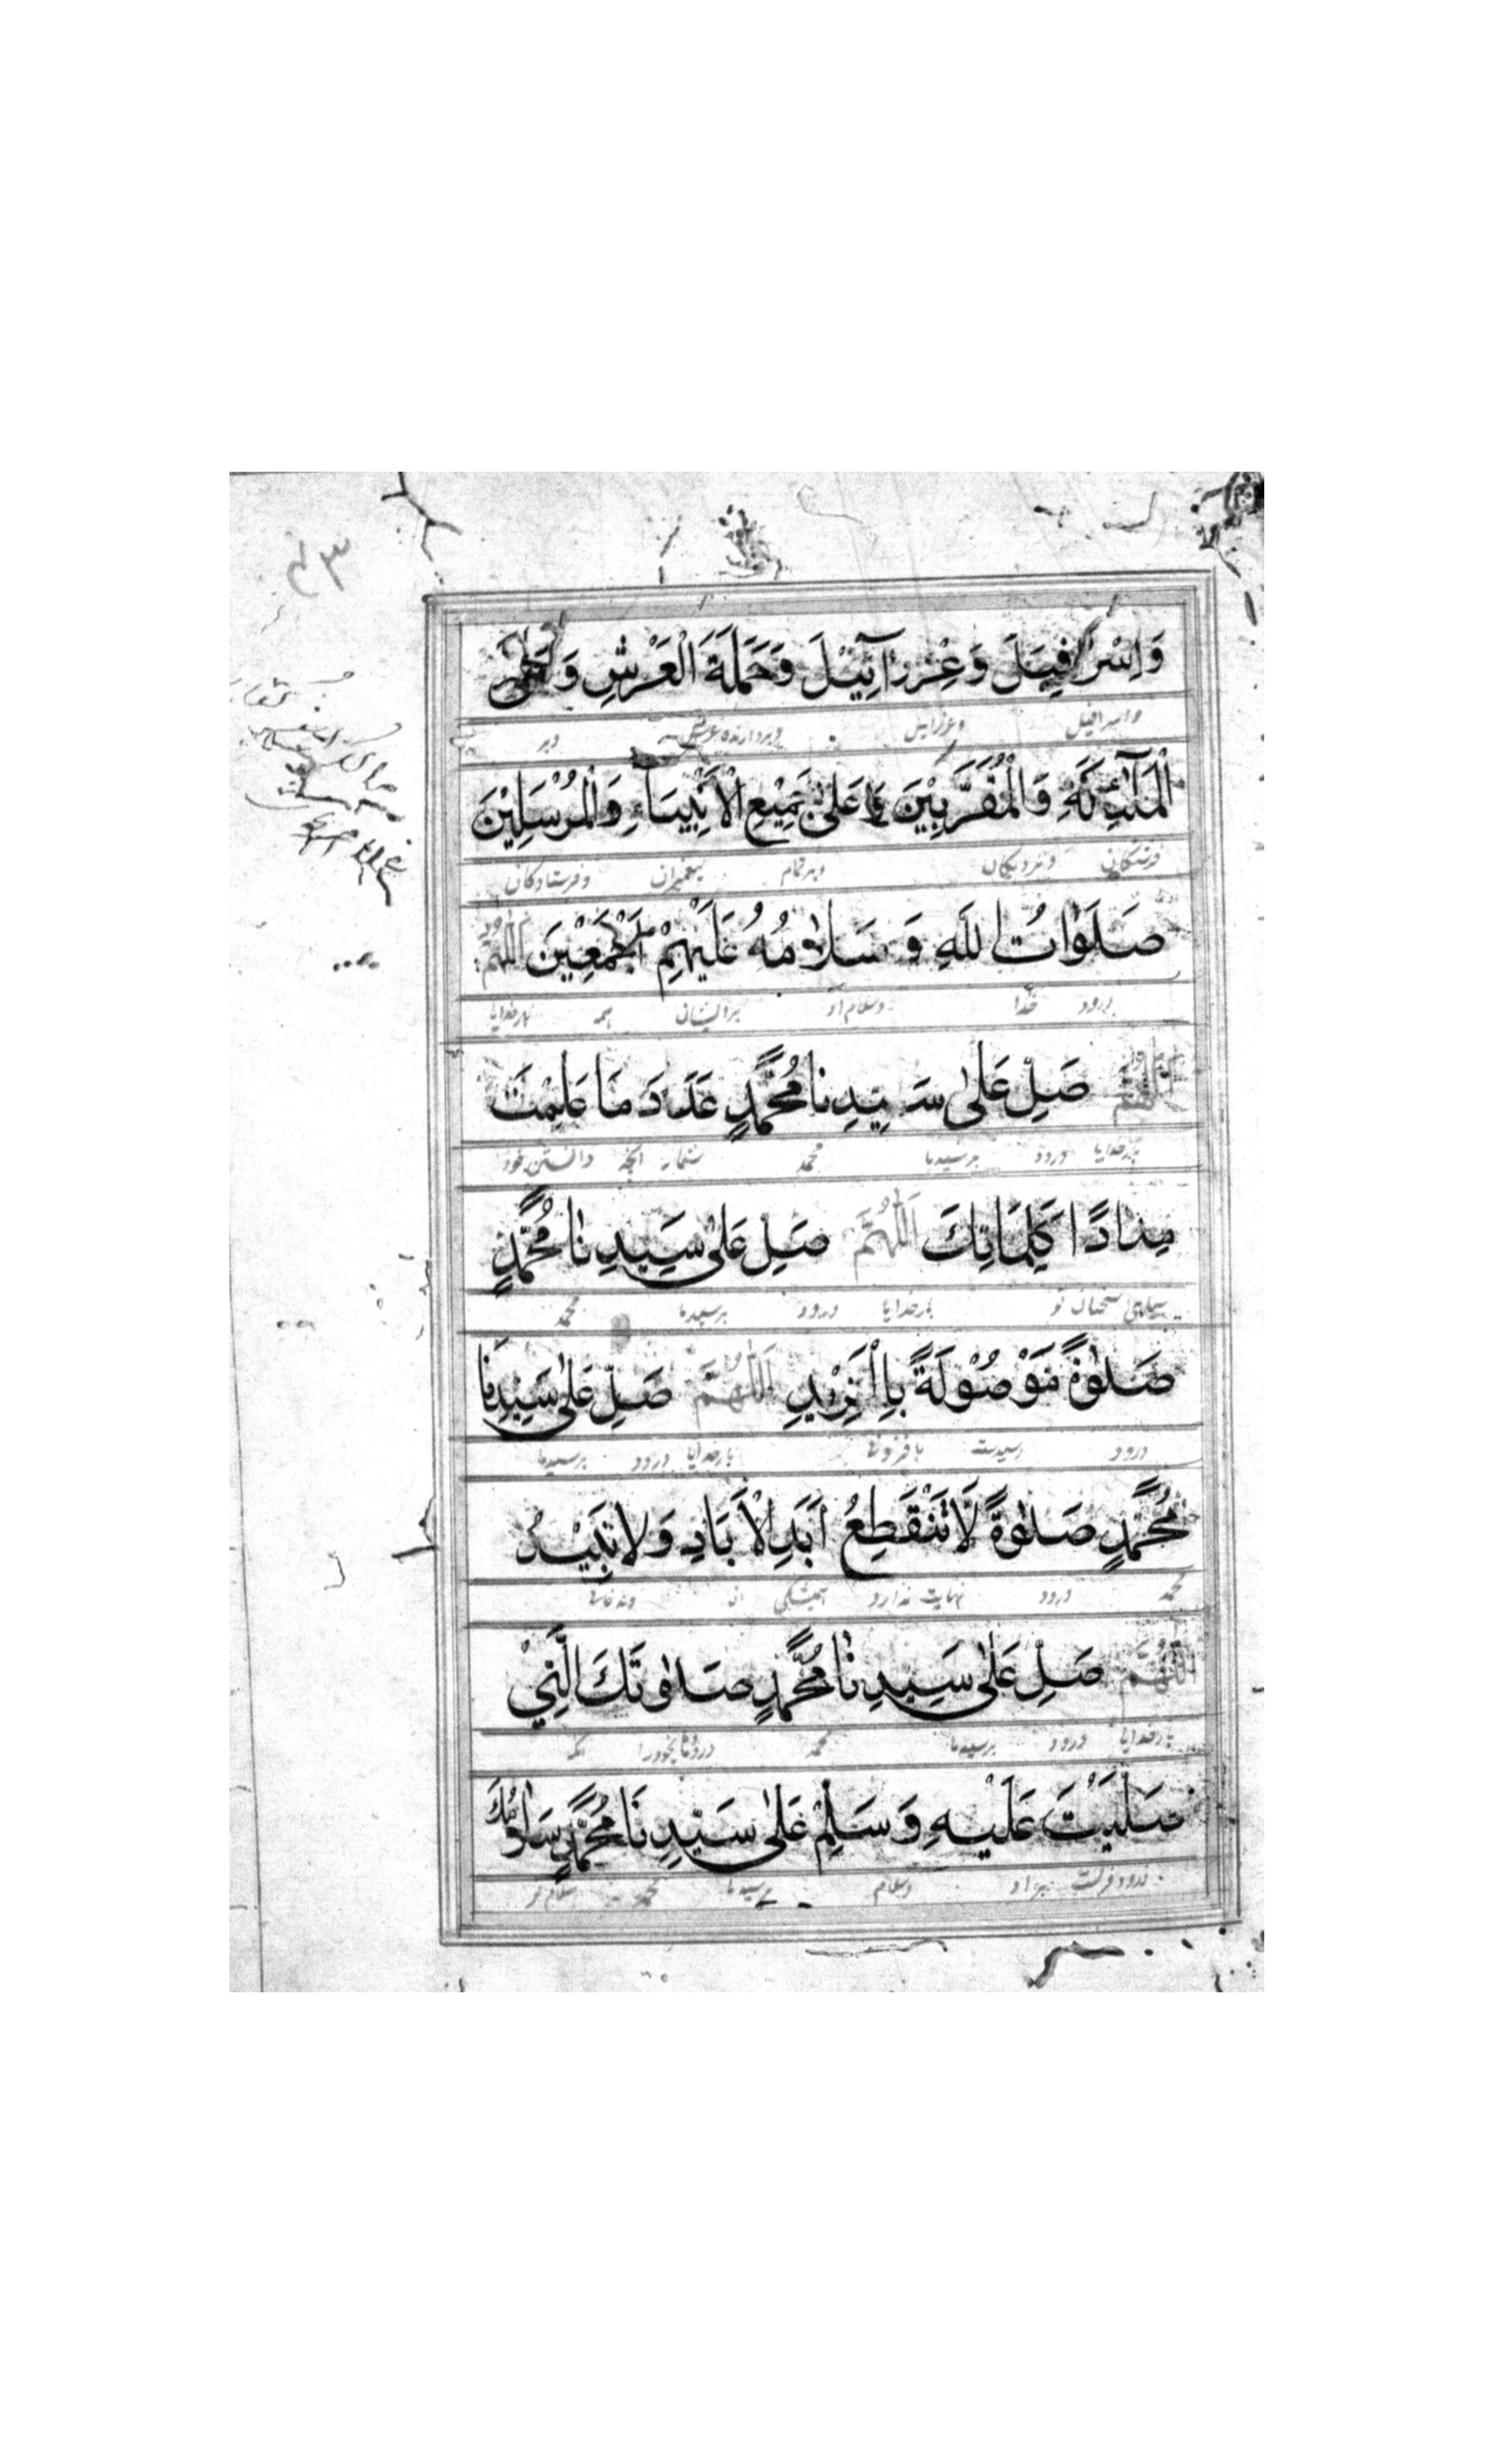 ۴۳
وَاِسْرَافِيلَ وَعِزْرَآئِيْلَ وَحَمَلَةَ الْعَرْشِ وَعَلَى
واسرافیل وعزرایل وبردارنده عرش وبر
الْمَلٰٓئِكَةِ وَالْمُقَرَّبِيْنَ وَعَلٰى جَمِيْعِ الْاَنْبِيَآءِ وَالْمُرْسَلِيْنَ
فرشتکان ونزدیکان وبر تمام پیغمبران وفرستادکان
صَلَوٰاتُ اللهِ وَسَلَامُهُ عَلَيْهِمْ اَجْمَعِيْنَ اَللّٰهُمَّ
درود خدا وسلام او بر ایشان همه بارخدایا
اَللّٰهُمَّ صَلِّ عَلٰى سَيِّدِنَا مُحَمَّدٍ عَدَدَ مَا عَلِمْتَ
بارخدایا درود بر سیدما محمد شمار انچه دانستن خود
مِدَادًا كَلِمَاتِكَ اَللّٰهُمَّ صَلِّ عَلٰى سَيِّدِنَا مُحَمَّدٍ
سیاهی سخنان تو بارخدایا درود بر سیدما محمد
صَلٰوةً مَوْصُوْلَةً بِاالْمَزِيْدِ اَللّٰهُمَّ صَلِّ عَلٰى سَيِّدِنَا
درود رسیدست بافزونی بارخدایا درود بر سیدما
مُحَمَّدٍ صَلٰوةً لَّا تَنْقَطِعُ اَبَدَ الْاَبَادِ وَلَا تَبِيْدُ
محمد درود نهایت ندارد همیشکی ان ونه فانی
اَللّٰهُمَّ صَلِّ عَلٰى سَيِّدِنَا مُحَمَّدٍ صَلٰوتَكَ الَّتِيْ
بارخدایا درود بر سیدما محمد درودهای خودرا انکه
صَلَّيْتَ عَلَيْهِ وَسَلِّمْ عَلٰى سَيِّدِنَا مُحَمَّدٍ سَلَامَكَ
درود فرستی بر او وسلام بر سیدما محمد سلام تو